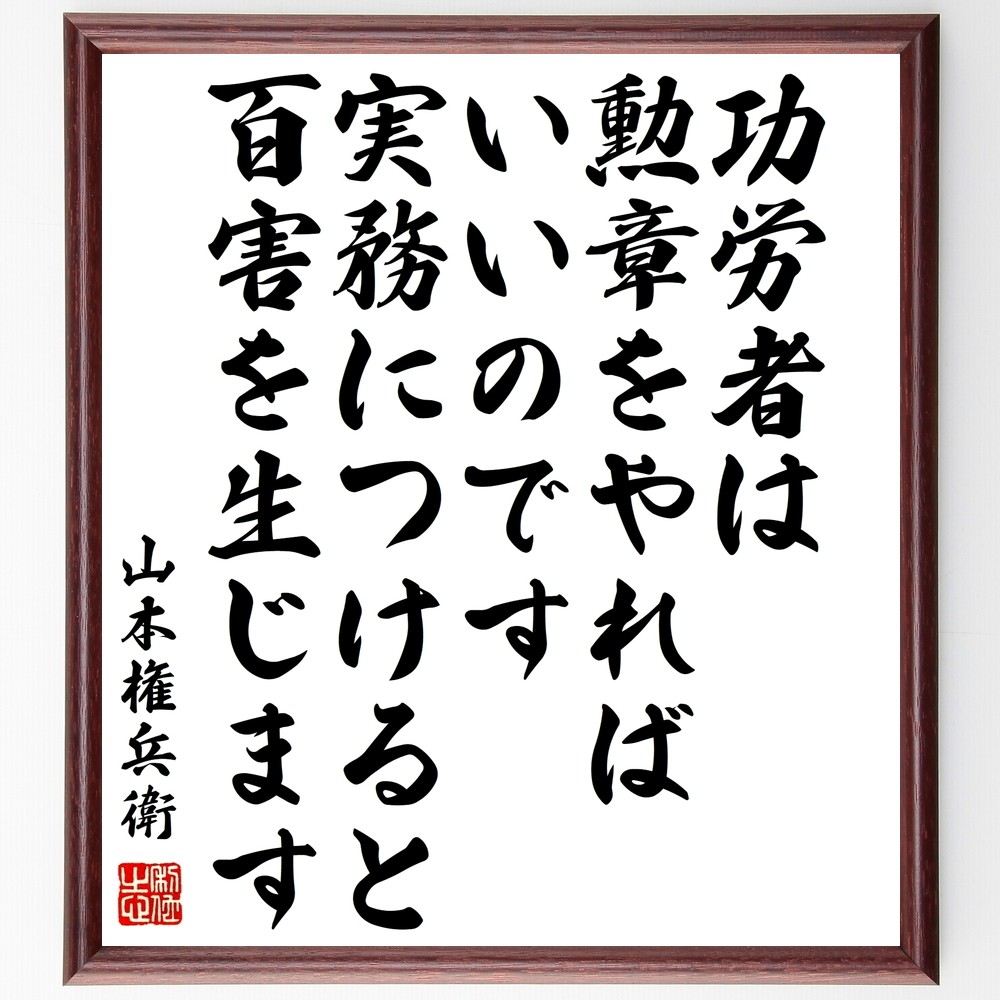 功労者は
勲章をやれば
いいのです
実務につけると
百害を生じます
山本権兵衛